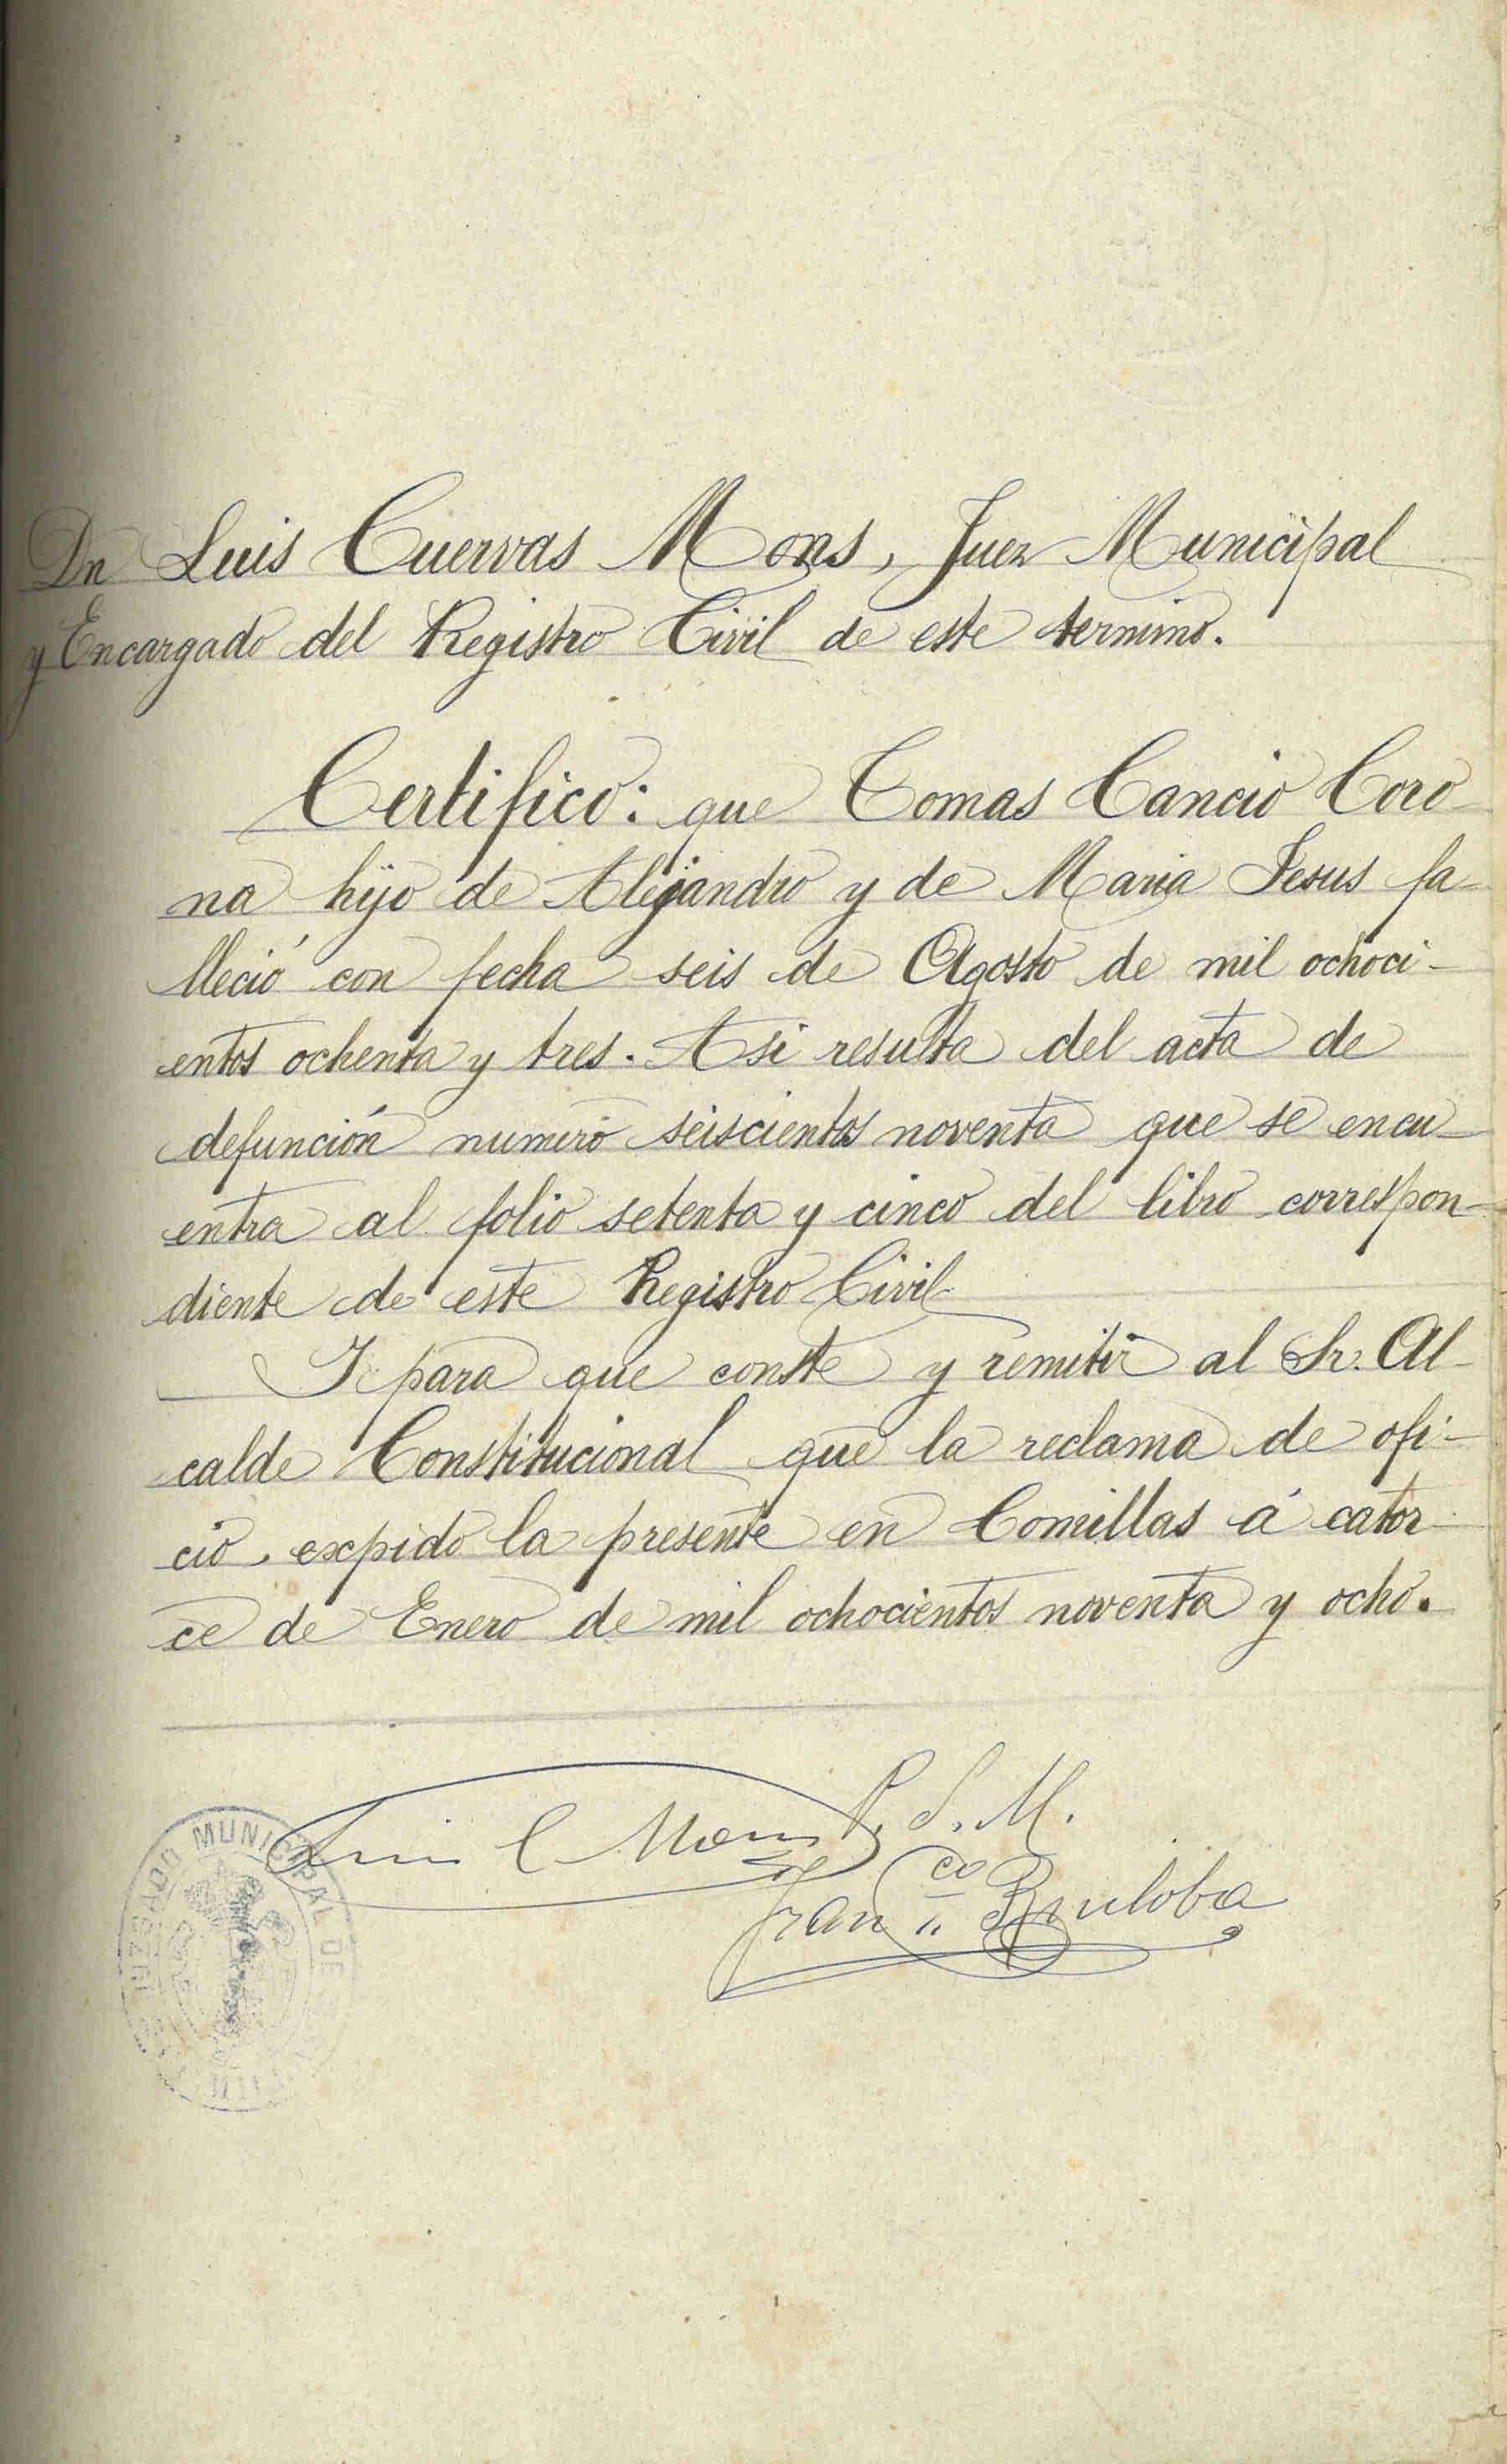 Dn Luis Cuervas Mons, Juez Municipal
y Encargado del Registro Civil de este termino.
Certifico: que Tomas Cancio Coro-
na hijo de Alejandro y de Maria Jesus fa-
lleció con fecha seis de Agosto de mil ochoci-
entos ochenta y tres. Asi resulta del acta de
defunción numero seiscientos noventa que se encu-
entra al folio setenta y cinco del libro correspon-
diente de este Registro Civil
Y para que conste y remitir al Sr. Al-
calde Constitucional que la reclama de ofi-
cio, expido la presente en Comillas á cator-
ce de Enero de mil ochocientos noventa y ocho.
Luis C Mons P. S. M.
Franco Ruiloba
JUZGADO MUNICIPAL DE